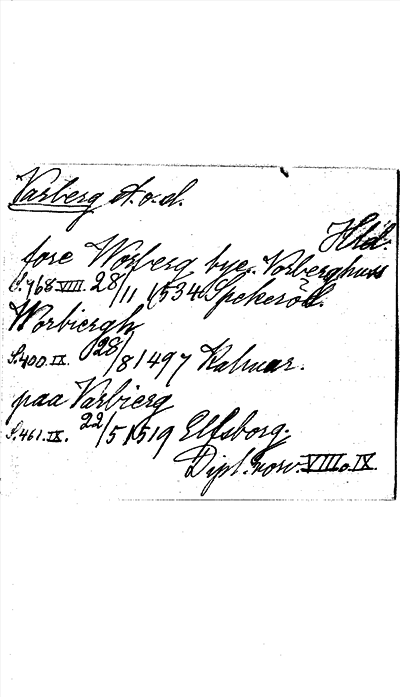 Varberg st.o.d.
Hld.
fore Worberg bye. Vorberghuus
S.768.VIII. 28/11 1534 Spekeröd.
Worbiergh
S.400.IX. 28/8 1497 Kalmar.
paa Varbierg
S.461.IX. 22/5 1519 Elfsborg.
Dipl. norv. VIII o. IX.